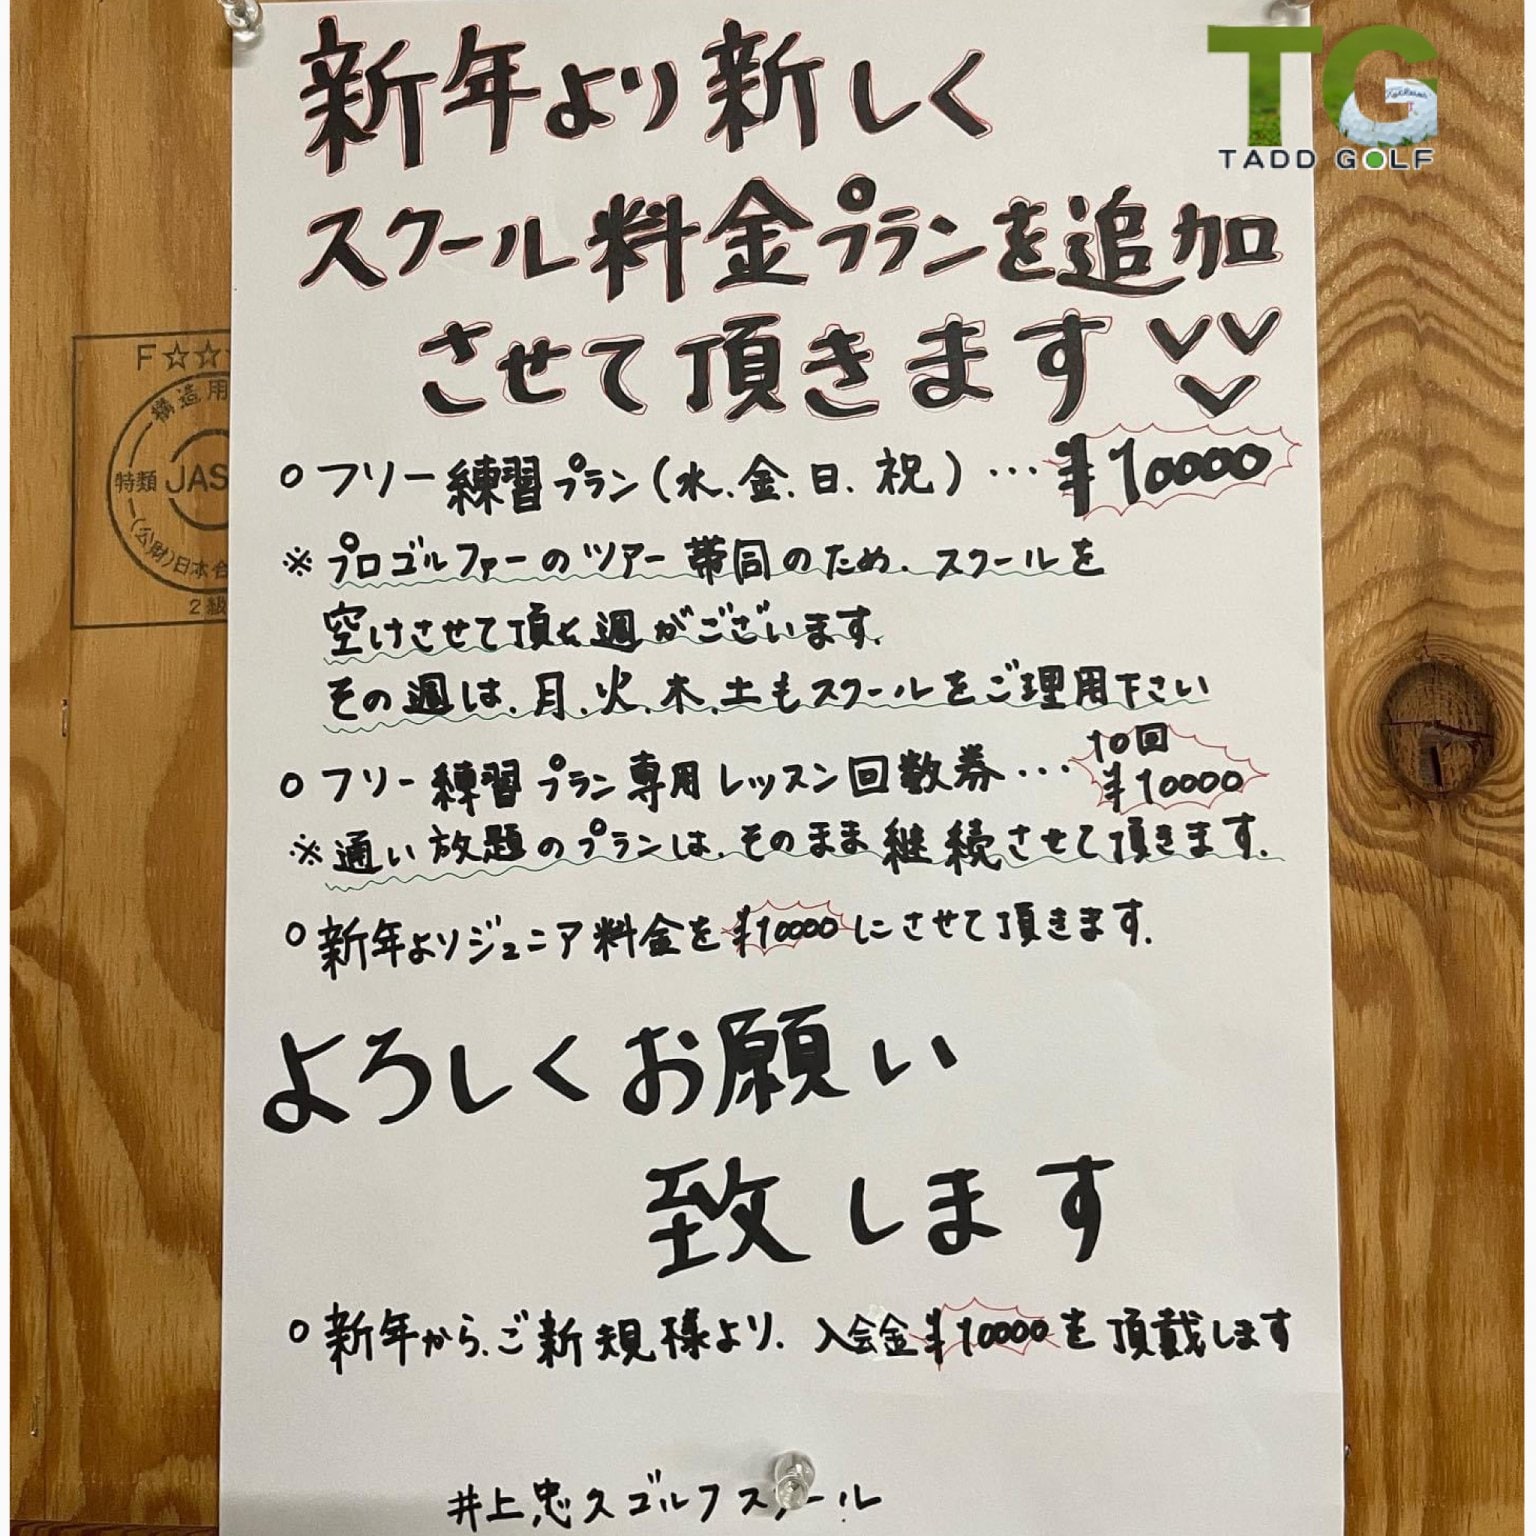 TG
TADD GOLF
新年より新しく
スクール料金プランを追加
させて頂きます
○フリー練習プラン(水、金、日、祝)…¥10000
※プロゴルファーのツアー帯同のため、スクールを
空けさせて頂く週がございます。
その週は、月、火、木、土もスクールをご理用下さい
○フリー練習プラン専用レッスン回数券…10回¥10000
※通い放題のプランは、そのまま継続させて頂きます。
○新年よりジュニア料金を¥10000にさせて頂きます。
よろしくお願い
致します
○新年から、ご新規様より、入会金¥10000を頂戴します
井上忠久ゴルフスクール
F☆☆
構造用
特類
JAS
(公財)日本合
2級